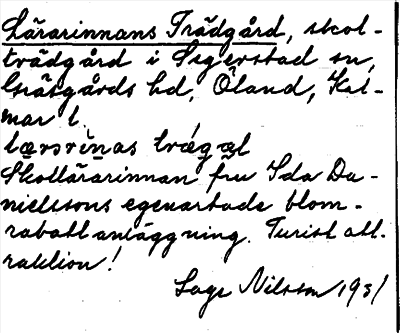 Lärarinnans Trädgård, skol-
trädgård i Segerstad sn,
Gräsgårds hd, Öland, Kal-
mar l.
lærerinas trægæl
Skollärarinnan fru Ida Da-
nielssons egenartade blom-
rabattanläggning. Turistatt-
raktion!
Sage Nilsson 1931